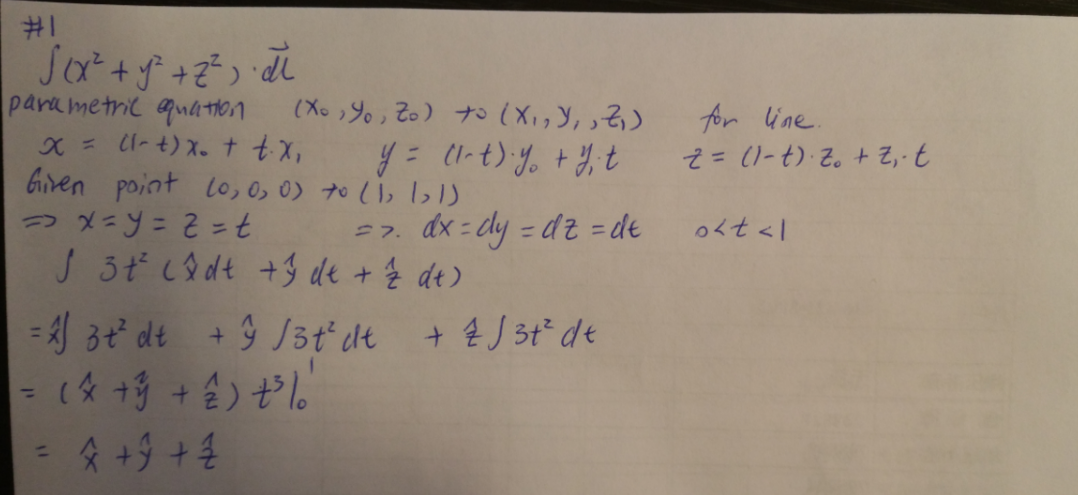 #1
∫(x² + y² + z²)·d⃗l
parametric equation (x₀, y₀, z₀) to (x₁, y₁, z₁) for line.
x = (1-t)x₀ + t·x₁ y = (1-t)·y₀ + y₁·t z = (1-t)·z₀ + z₁·t
Given point (0,0,0) to (1,1,1)
=> x = y = z = t =>. dx = dy = dz = dt 0<t<1
∫ 3t² (x̂ dt + ŷ dt + ẑ dt)
= x̂∫ 3t² dt + ŷ ∫3t² dt + ẑ ∫ 3t² dt
= (x̂ + ŷ + ẑ) t³|₀¹
= x̂ + ŷ + ẑ